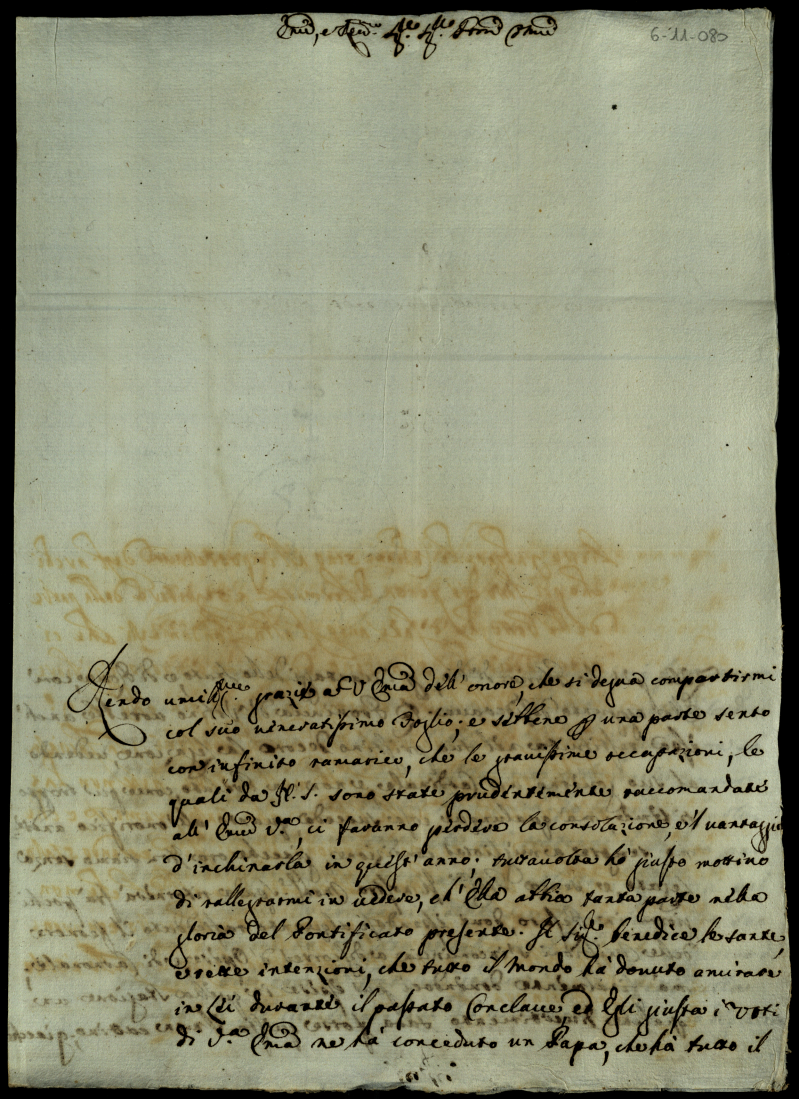 Em.o, e Rev.mo Sig.re Sig.re Pron Cmo
6-11-080
Rendo umiliss.me grazie a V Em.za dell' onore, che si degna compartirmi
col suo veneratissimo Foglio; e sebbene p una parte sento
con infinito ramarico, che le gravissime occupazioni, le
quali da N. S. sono state prudentemente raccomandate
all' Em.za V.ra, ci faranno perdere la consolazione, e 'l vantaggio
d'inchinarla in quest' anno; tuttavolta hò giusto mottivo
di rallegrarmi in vedere, ch' Ella abbia tanta parte nella
gloria del Pontificato presente. Il Sig.re benedice le sante,
e rette intenzioni, che tutto il Mondo hà dovuto amirare
in Lei durante il passato Conclave, ed Egli giusta i voti
di V.ra Em.za ne hà conceduto un Papa, che hà tutto il